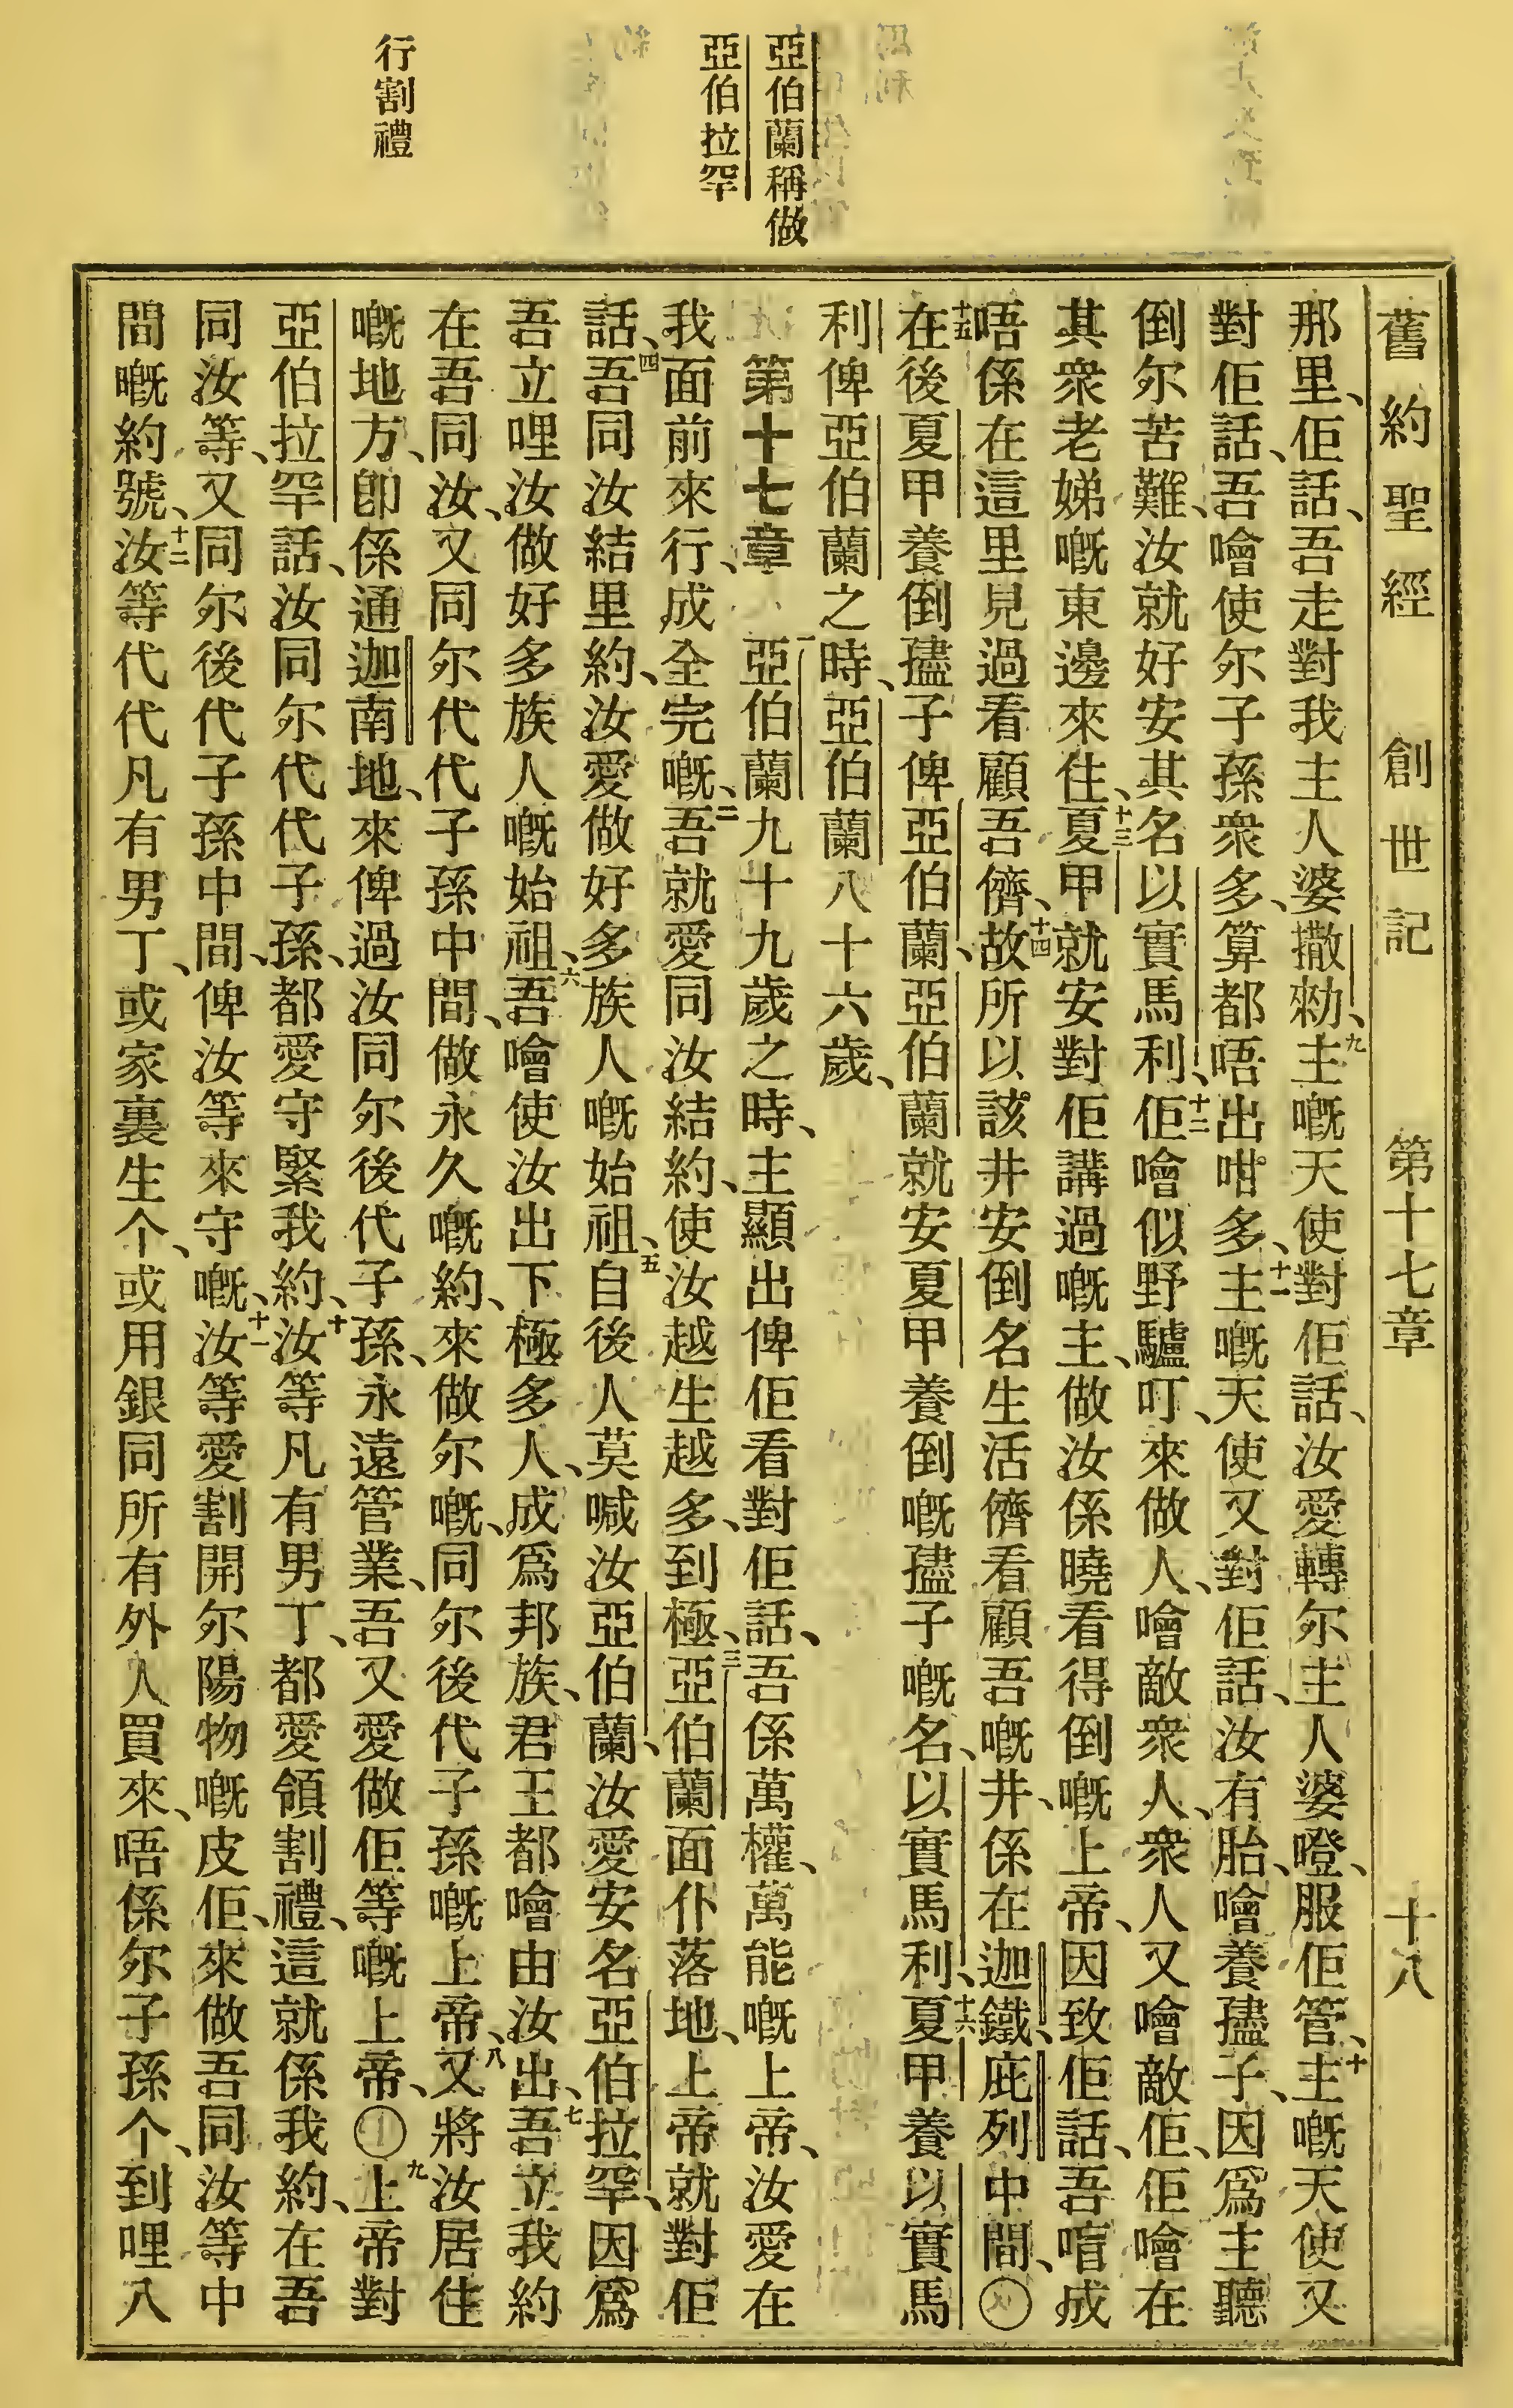 亞伯蘭稱做
亞伯拉罕
行割禮
舊約聖經 創世記 第十七章 十八
那里、佢話、吾走對我主人婆撒勑、九主嘅天使對佢話、汝愛轉尔主人婆㘾、服佢管、十主嘅天使又
對佢話、吾噲使尔子孫衆多、算都唔出咁多、十一主嘅天使又對佢話、汝有胎、噲養𡥧子、因爲主聽
倒尔苦難、汝就好安其名以實馬利、十二佢噲似野驢叮、來做人、噲敵衆人、衆人又噲敵佢、佢噲在
其衆老娣嘅東邊來住、十三夏甲就安對佢講過嘅主、做汝係曉看得倒嘅上帝、因致佢話、吾喑成
唔係在這里見過看顧吾儕、十四故所以該井安倒名生活儕看顧吾嘅井、係在迦鐵、庇列中間、〇
十五在後夏甲養倒𡥧子俾亞伯蘭、亞伯蘭就安夏甲養倒嘅𡥧子嘅名、以實馬利、十六夏甲養以實馬
利俾亞伯蘭之時、亞伯蘭八十六歲、
第十七章 一亞伯蘭九十九歲之時、主顯出俾佢看對佢話、吾係萬權、萬能嘅上帝、汝愛在
我面前來行、成全完嘅、二吾就愛同汝結約、使汝越生越多、到極、三亞伯蘭面仆落地、上帝就對佢
話、四吾同汝結里約、汝愛做好多族人嘅始祖、五自後人莫喊汝亞伯蘭、汝愛安名亞伯拉罕、因爲
吾立哩汝做好多族人嘅始祖、六吾噲使汝出下極多人、成爲邦族、君王都噲由汝出、七吾立我約
在吾同汝、又同尔代代子孫中間、做永久嘅約、來做尔嘅、同尔後代子孫嘅上帝、八又將汝居住
嘅地方、卽係通迦南地、來俾過汝同尔後代子孫、永遠管業、吾又愛做佢等嘅上帝、〇九上帝對
亞伯拉罕話、汝同尔代代子孫、都愛守緊我約、十汝等凡有男丁、都愛領割禮、這就係我約、在吾
同汝等、又同尔後代子孫中間、俾汝等來守嘅、十一汝等愛割開尔陽物嘅皮佢、來做吾同汝等中
間嘅約號、十二汝等代代凡有男丁、或家裏生个、或用銀同所有外人買來、唔係尔子孫个、到哩八